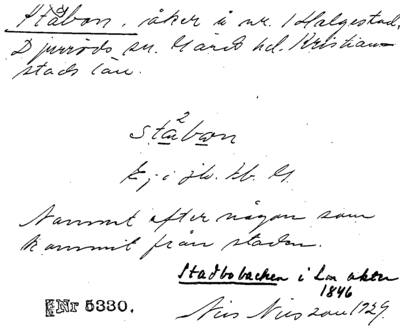 Ståbon, åker å nr. 1 Halgestad,
Djurröds sn. Gärds hd. Kristian-
stads län.
2
ståbon
kj i jb. Ab. G.
Namnet efter någon som
kommit från staden.
Stadbobacken i Lm akten
1846
Nr 5330.
Nils Nilsson 1929.